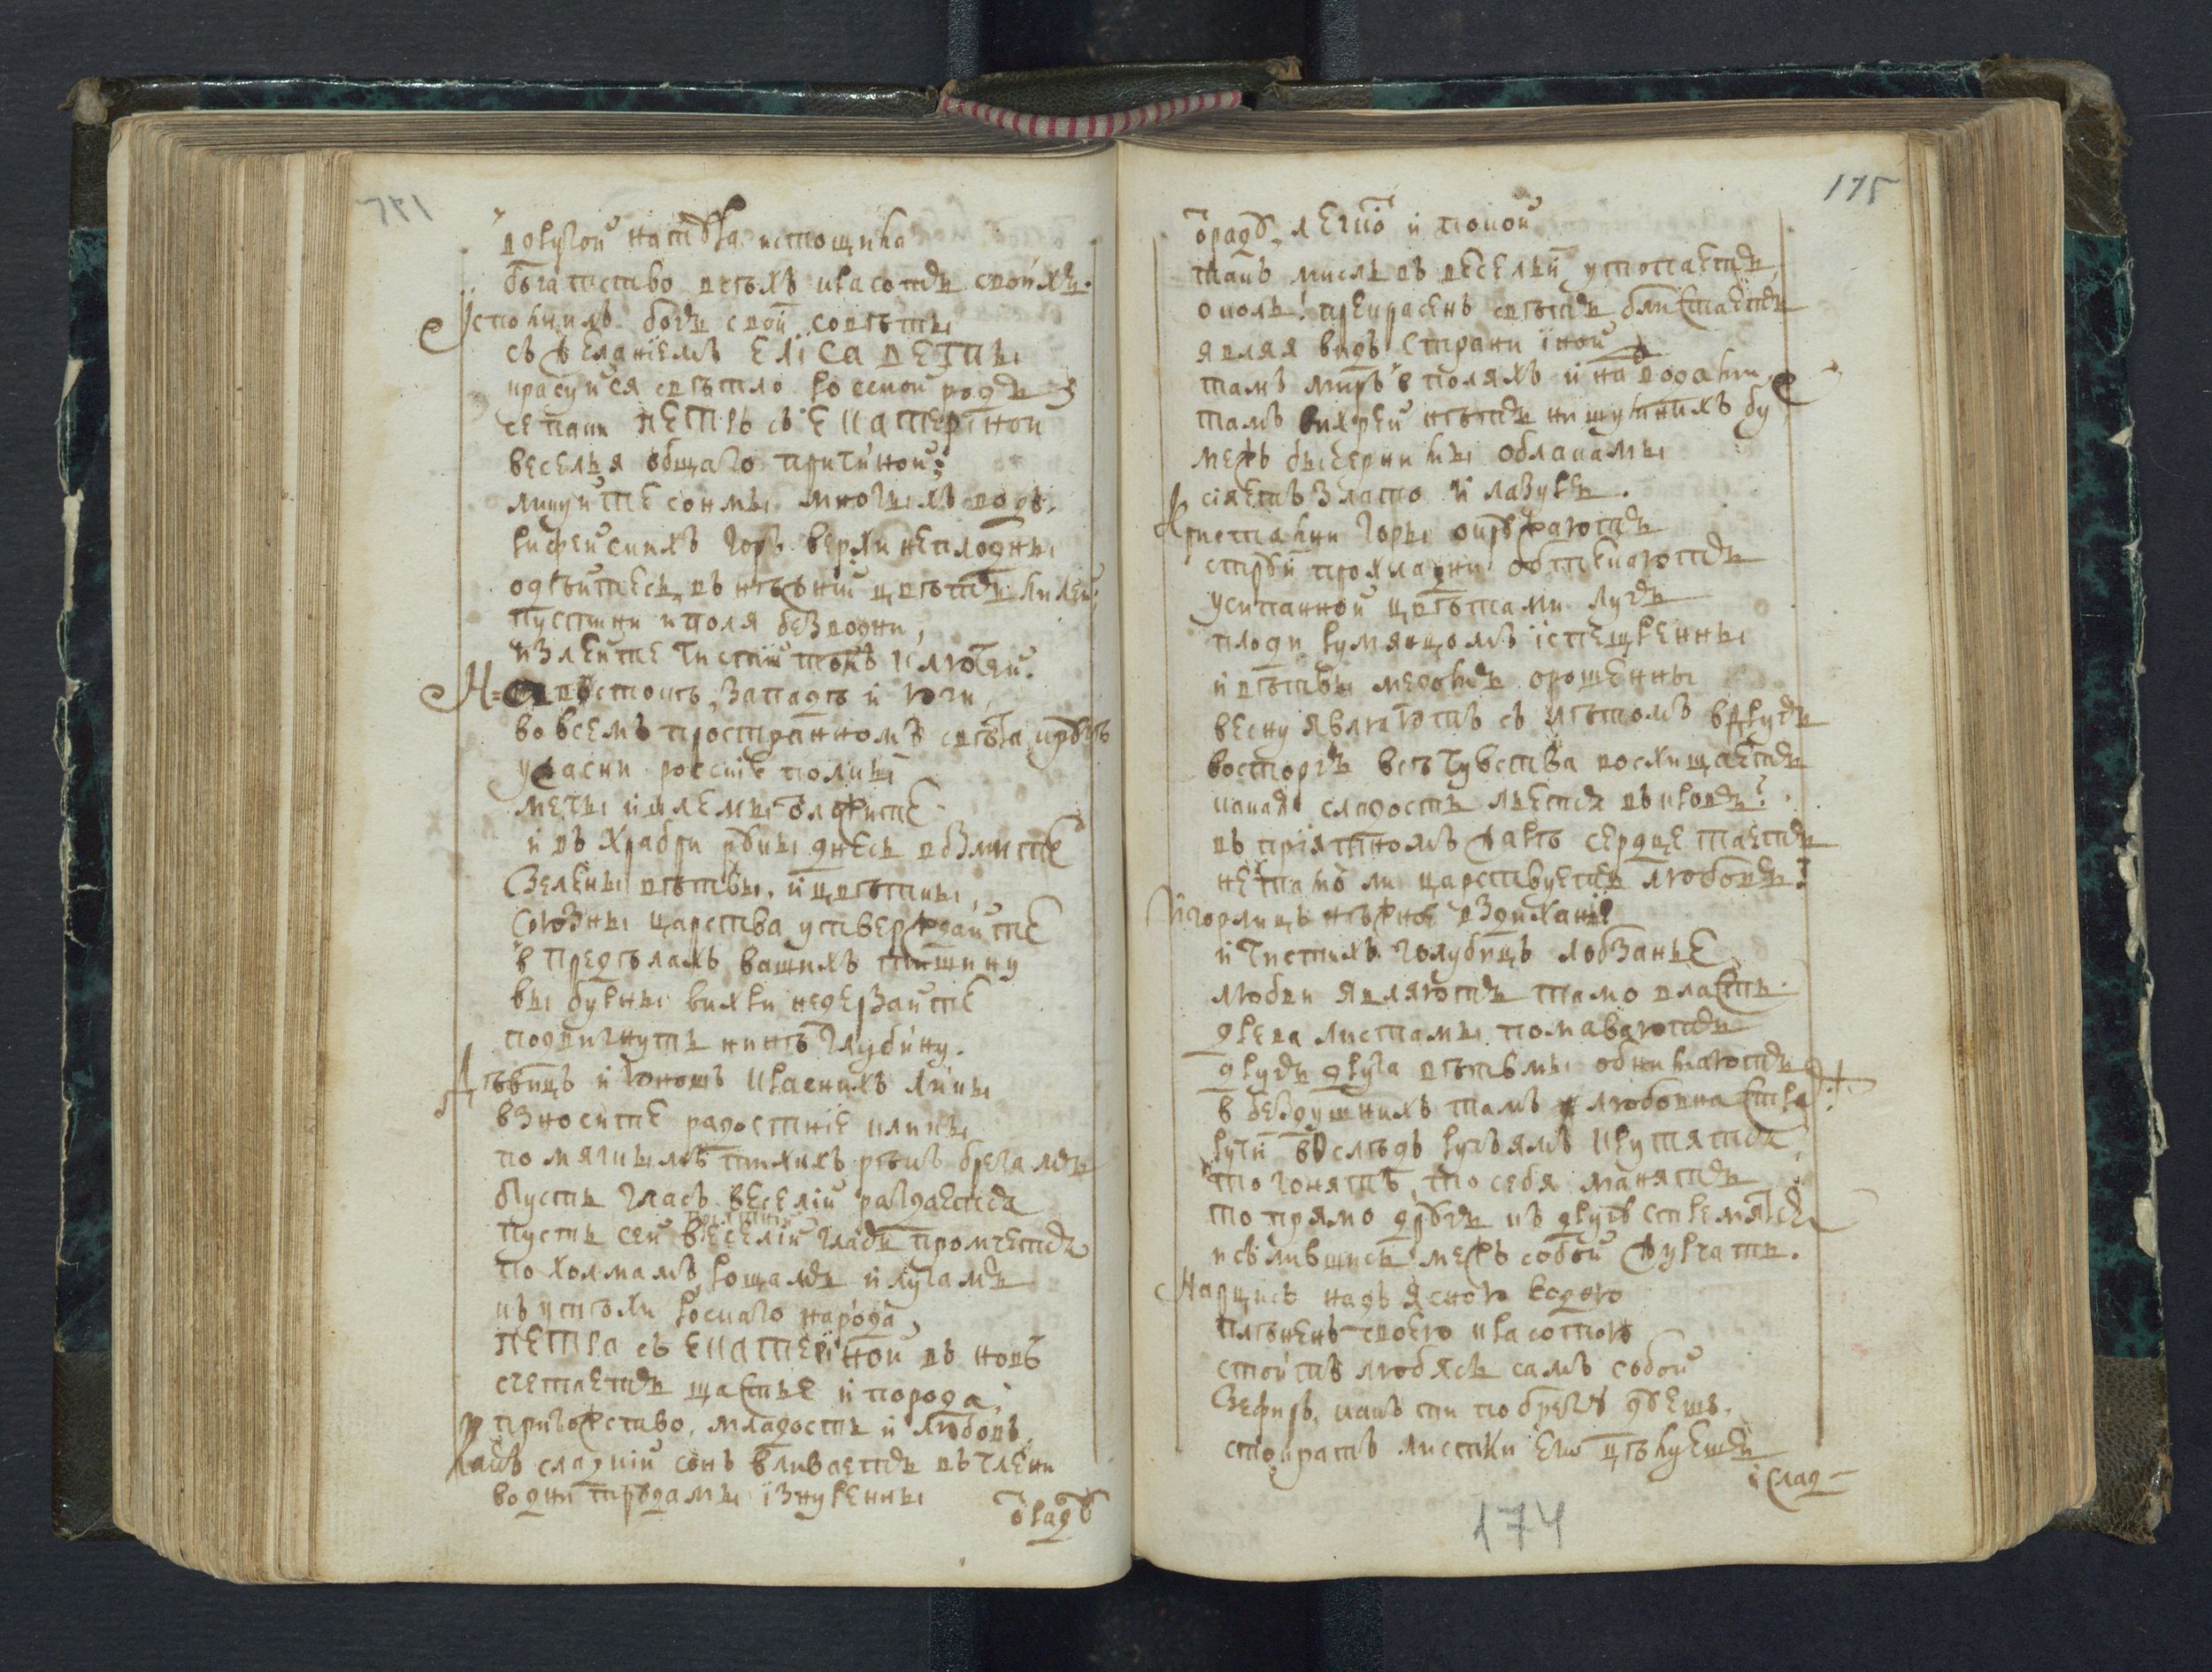 вдругой натура истощила
богатство всѣхъ красотъ своихъ.
Исполнилъ богъ свои совѣты
съ желаніемъ ЕЛІСАВЕТЫ
красуйся свѣтло росской родъ
се паки ПЕТРЪ съ ЕКАТЕРІНОЙ
веселья общаго причиной:
ликуйте сонмы многихъ водъ.
рифейскихъ горъ верхи неплодны
одѣйтесь въ нѣжній цвѣтъ лилей;
пустини и поля безводни,
излейте чистій токъ ключей.
На востокъ, западъ и юги,
во всемъ пространномъ свѣта кругѣ
ужасни россскіе полки
мечи и шлемы отложите
и въ храбри руки днесь возмите
зелены вѣтвы, и цвѣтки,
союзны царства утверждайте
в предѣлахъ вашихъ тишину
вы бурны вихри недерзайте
подвигнуть нинѣ глубину.
Дѣвицъ и юношъ красныхъ лики
взносите радостніе клики
по мягкимъ тихихъ рѣкъ брегамъ
пусть гласъ веселій раздается
пусть сей веселій гладъ промчется
пріятній
по холмамъ, рощамъ и лугамъ
къ утѣхи роскаго народа,
ПЕТРА съ ЕКАТЕРІНОЙ въ новь
счетаетъ щастье и порода,
пригожство, младость и любовь.
Какъ сладкій сонъ вливаетъ въ члени
водни трудамы ізнуренны
отраду
175
отраду, легко и покой
такъ мисль въ весельи утопаетъ,
о коль! прекрасенъ свѣтъ блистаетъ
являя видъ страни іной
тамъ миръ в поляхъ и надводами,
тамъ вихрей нѣтъ ни шумнихъ бу
межъ бисерними облаками
сіяетъ злато и лазурь.
Кристални горы окружаютъ
струи прохладни обтекаютъ
усипанной цвѣтами лугъ
плоди румянцомъ іспещренны
и вѣтвы медомъ орошенны
весну являютъ съ лѣтомъ вдругъ
восторгъ всѣ чувства восхищаетъ
какая сладость льется въ кровь?
въ пріятномъ жарѣ сердце таетъ
не тамо ли царствуетъ любовь?
И горлицъ нѣжное вздиханіе
и чистихъ голубицъ лобзанье
любви являютъ тамо власть.
древа листамы помаваютъ
другъ друга вѣтвмы обнимаютъ
в бездушнихъ тамъ любовна страсть
ручи вослѣдъ ручьямъ крутятся,
то гонятъ, то себя манятъ
то прямо другъ къ другъ стремятся
и слившись межъ собой журчатъ.
Нарцисъ надъ ясною водою
плѣненъ своею красотою
стоитъ любясь самъ собой
Зефиръ, какъ ти по брегу дуешъ,
стократъ листки его цѣлуешъ
і слад-
174